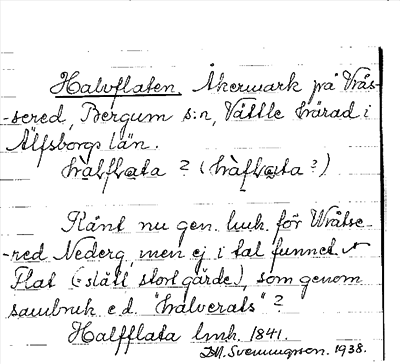 Halvflaten. Åkermark på Vrås-
-sered, Bergum s:n, Vättle härad i
Älfsborgs län.
hàlflata ? (hàflata ?)
Känt nu gen. lmh. för Vråsse-
-red Nederg. men ej i tal funnet.
Flat (= slätt stort gärde), som genom
sambruk e.d. "halverats" ?
Halfflata lmh. 1841.
D.M. Svenningson. 1938.